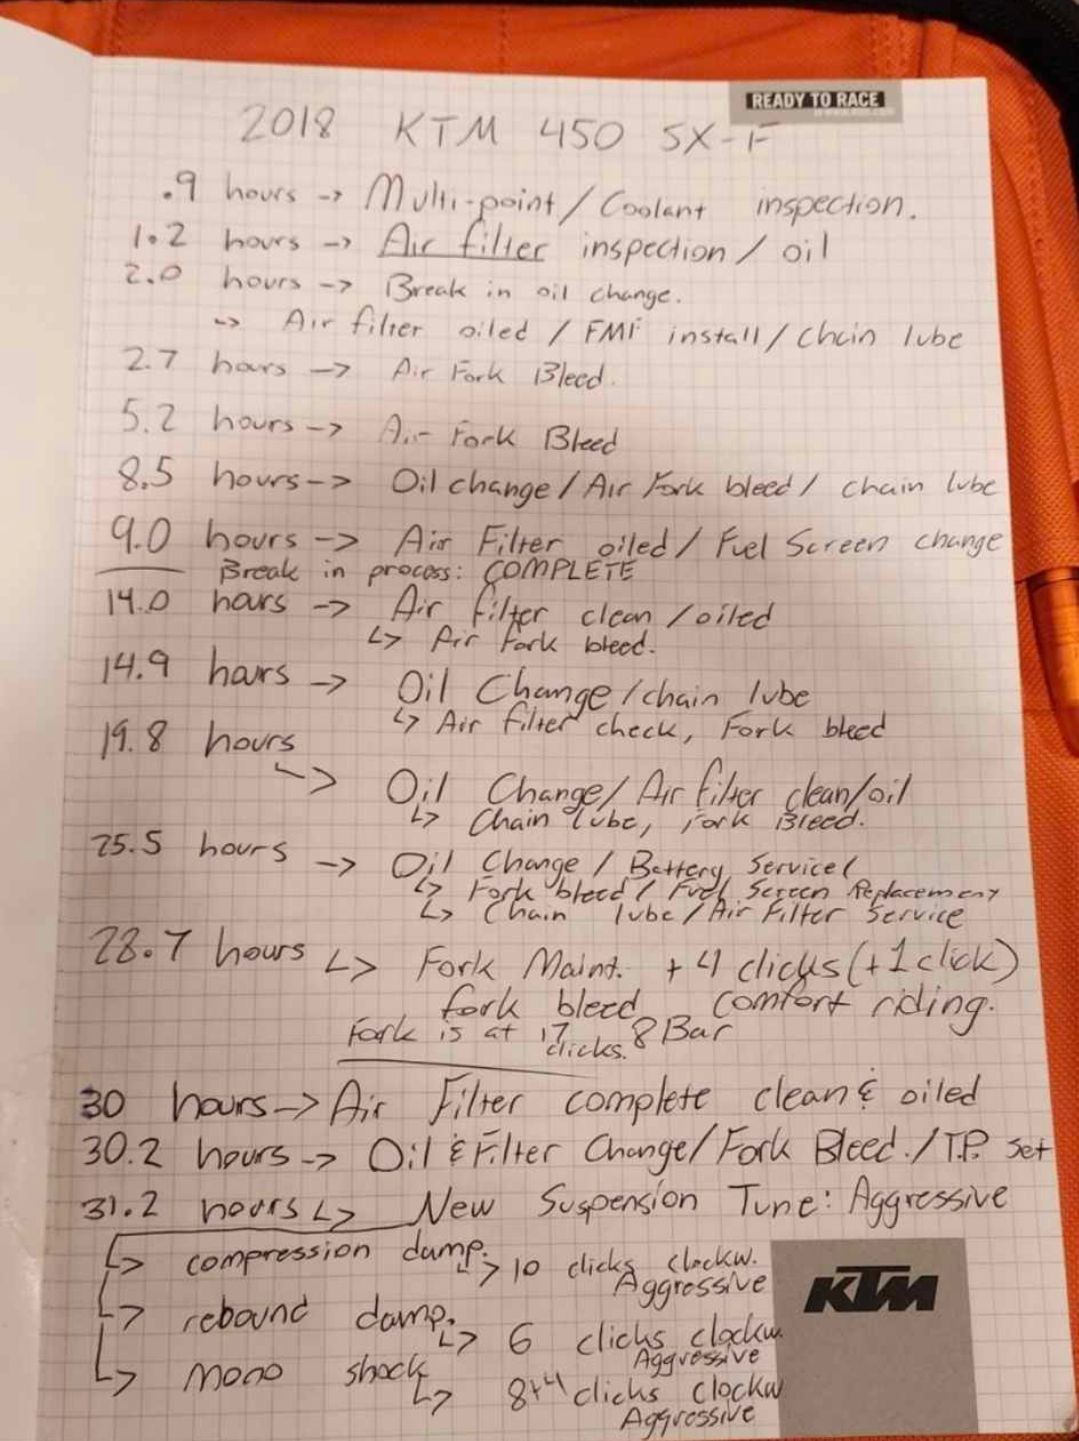 READY TO RACE
2018 KTM 450 SX-F
.9 hours -> Multi-point / Coolant inspection.
1.2 hours -> Air filter inspection / oil
2.0 hours -> Break in oil change.
↳ Air filter oiled / FMF install / Chain lube
2.7 hours -> Air Fork Bleed.
5.2 hours -> Air Fork Bleed
8.5 hours -> Oil change / Air Fork bleed / chain lube
9.0 hours -> Air Filter oiled / Fuel Screen change
Break in process: COMPLETE
14.0 hours -> Air filter clean / oiled
↳ Air Fork bleed.
14.9 hours -> Oil Change / chain lube
↳ Air filter check, Fork bleed
19.8 hours
↳ Oil Change / Air filter clean/oil
↳ Chain lube, Fork Bleed.
25.5 hours -> Oil Change / Battery Service /
↳ Fork bleed / Fuel Screen Replacement
↳ Chain lube / Air Filter Service
28.7 hours ↳ Fork Maint. + 4 clicks (+1 click)
fork bleed comfort riding.
Fork is at 17 clicks. 8 Bar
30 hours -> Air Filter complete clean & oiled
30.2 hours -> Oil & Filter Change / Fork Bleed. / T.P. set
31.2 hours ↳ New Suspension Tune: Aggressive
↳ compression damp. ↳ 10 clicks clockw.
Aggressive
↳ rebound damp. ↳ 6 clicks clockw.
Aggressive
↳ mono shock ↳ 8+4 clicks clockw
Aggressive
KTM